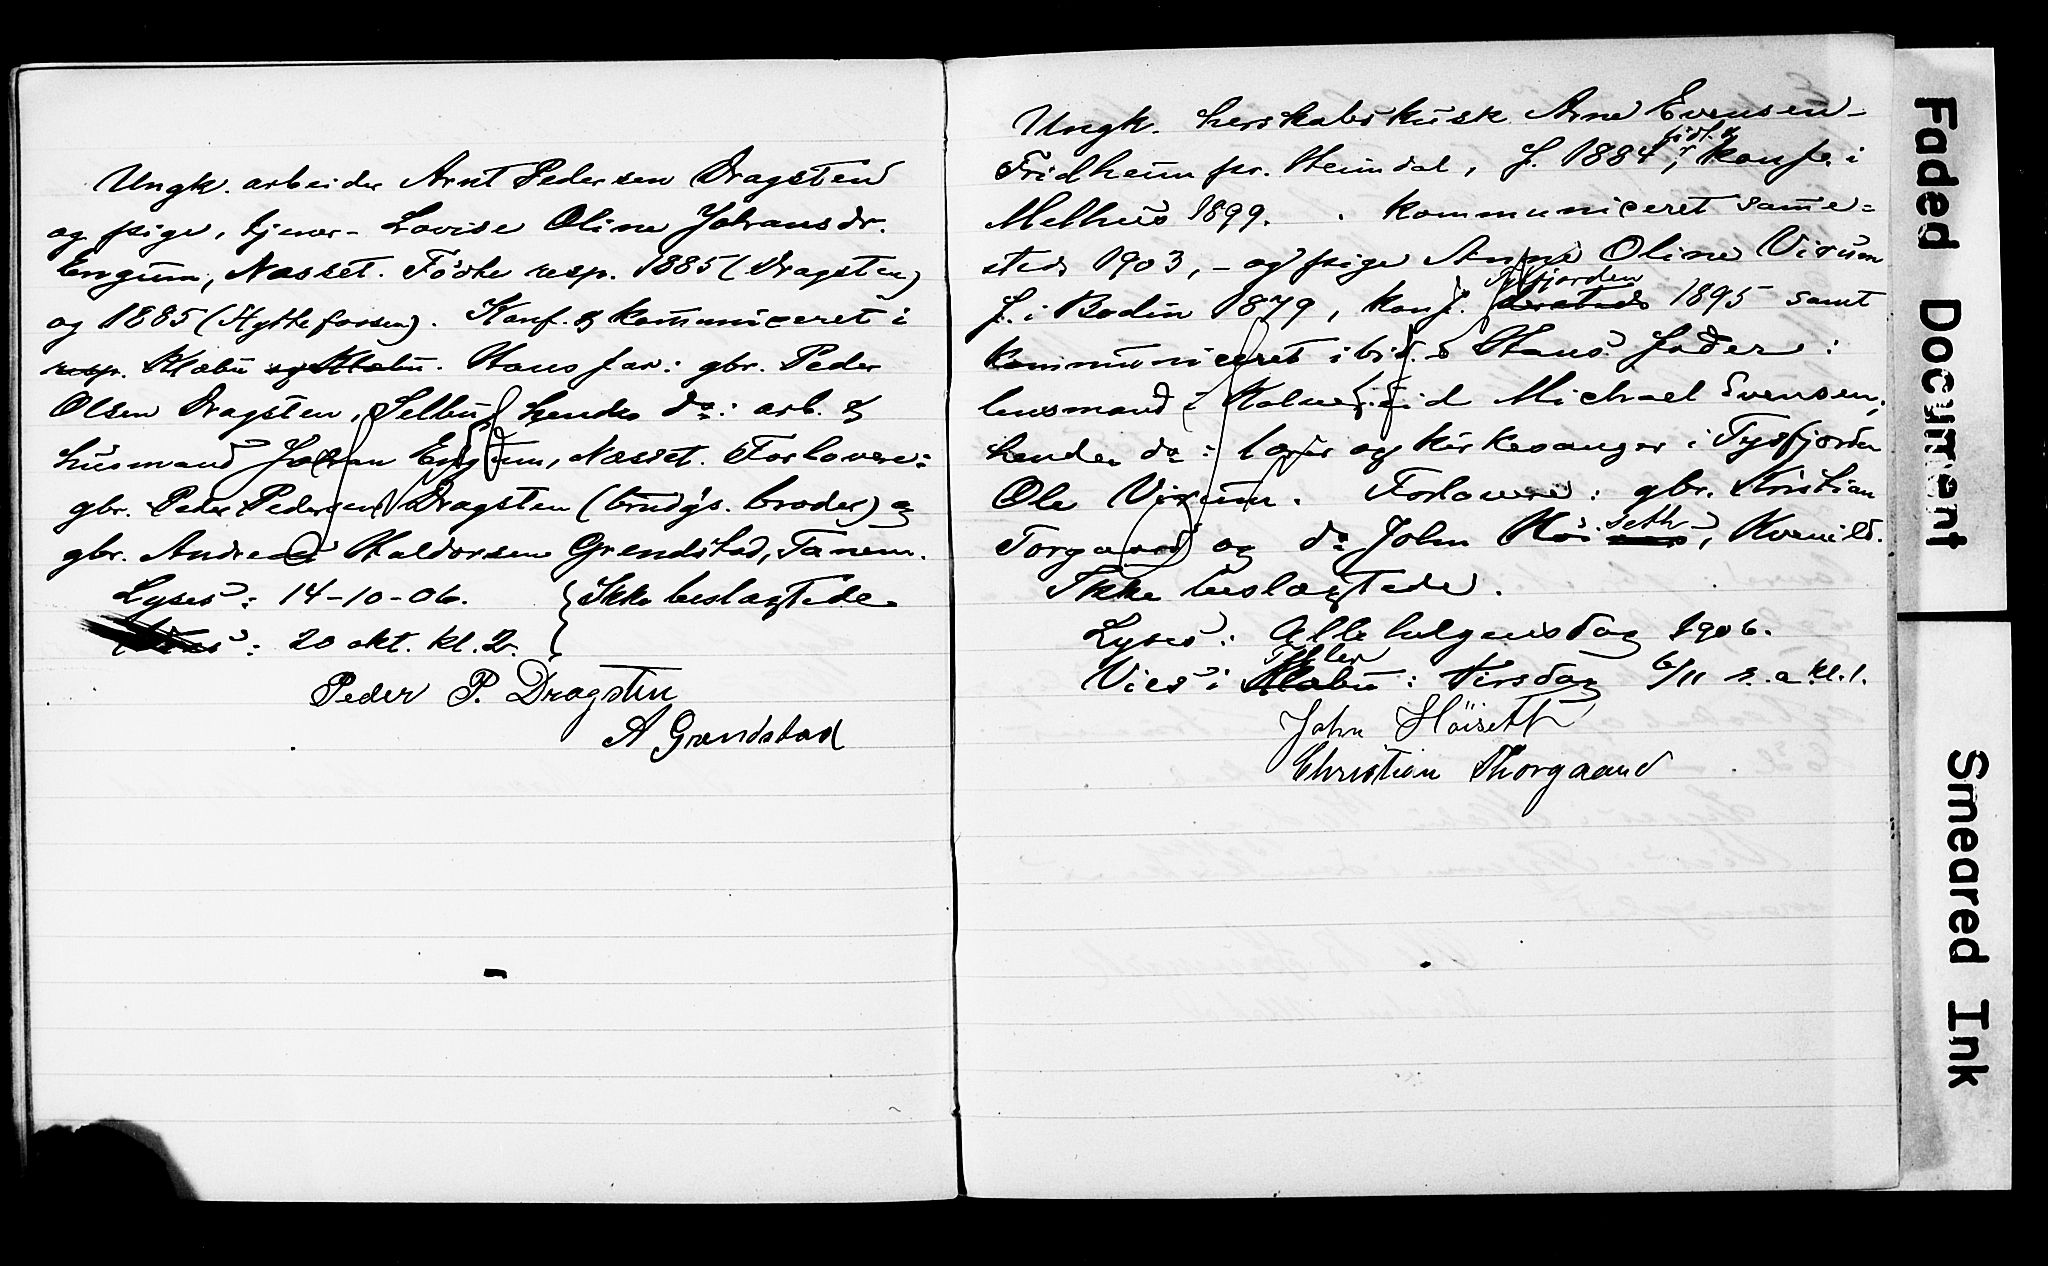 Ungk. arbeider Arnt Pedersen Dragsten
og pige, tjener- Lovise Oline Johansdr.
Engum, Næsset. Födte resp. 1885 (Dragsten)
og 1885 (Hyttefossen). Konf. & kommuniceret i
resp. Klæbu og Klæbu. Hans far: gbr. Peder
Olsen Dragsten, Selbu, hendes do: arb. &
husmand Johan Engum, Næsset. Forlovere:
gbr. Peder Pedersen Dragsten (brudgs. broder) og
gbr. Andreas Haldorsen Grendstad, Tanem.
Lyses: 14-10-06. Ikke beslægtede.
: 20 okt. kl. 2.
Peder P. Dragsten
A Grendstad
Ungk. herskabskusk Arne Evensen-
Fridheim pr. Heimdal, f. 1884, konf. i
Melhus 1899. kommuniceret samme=
steds 1903, - og pige Anna Oline Virum
f. i Bodin 1879, konf. Tysfjorden 1895 samt
kommuniceret ibid. Hans fader:
lensmand i Michael Evensen,
hendes do: lærer og kirkesanger i Tysfjorden
Ole Virum. Forlovere: gbr. Kristian
Torgaard og do John Höiseth, Kvenild.
Ikke beslægtede.
Lyses: Allehelgensdag 1906.
Vies i Tiller Klæbu: tirsdag 6/11 s.a. kl. 1.
John Höiseth
Christian Thorgaard
Faded Document
Smeared Ink